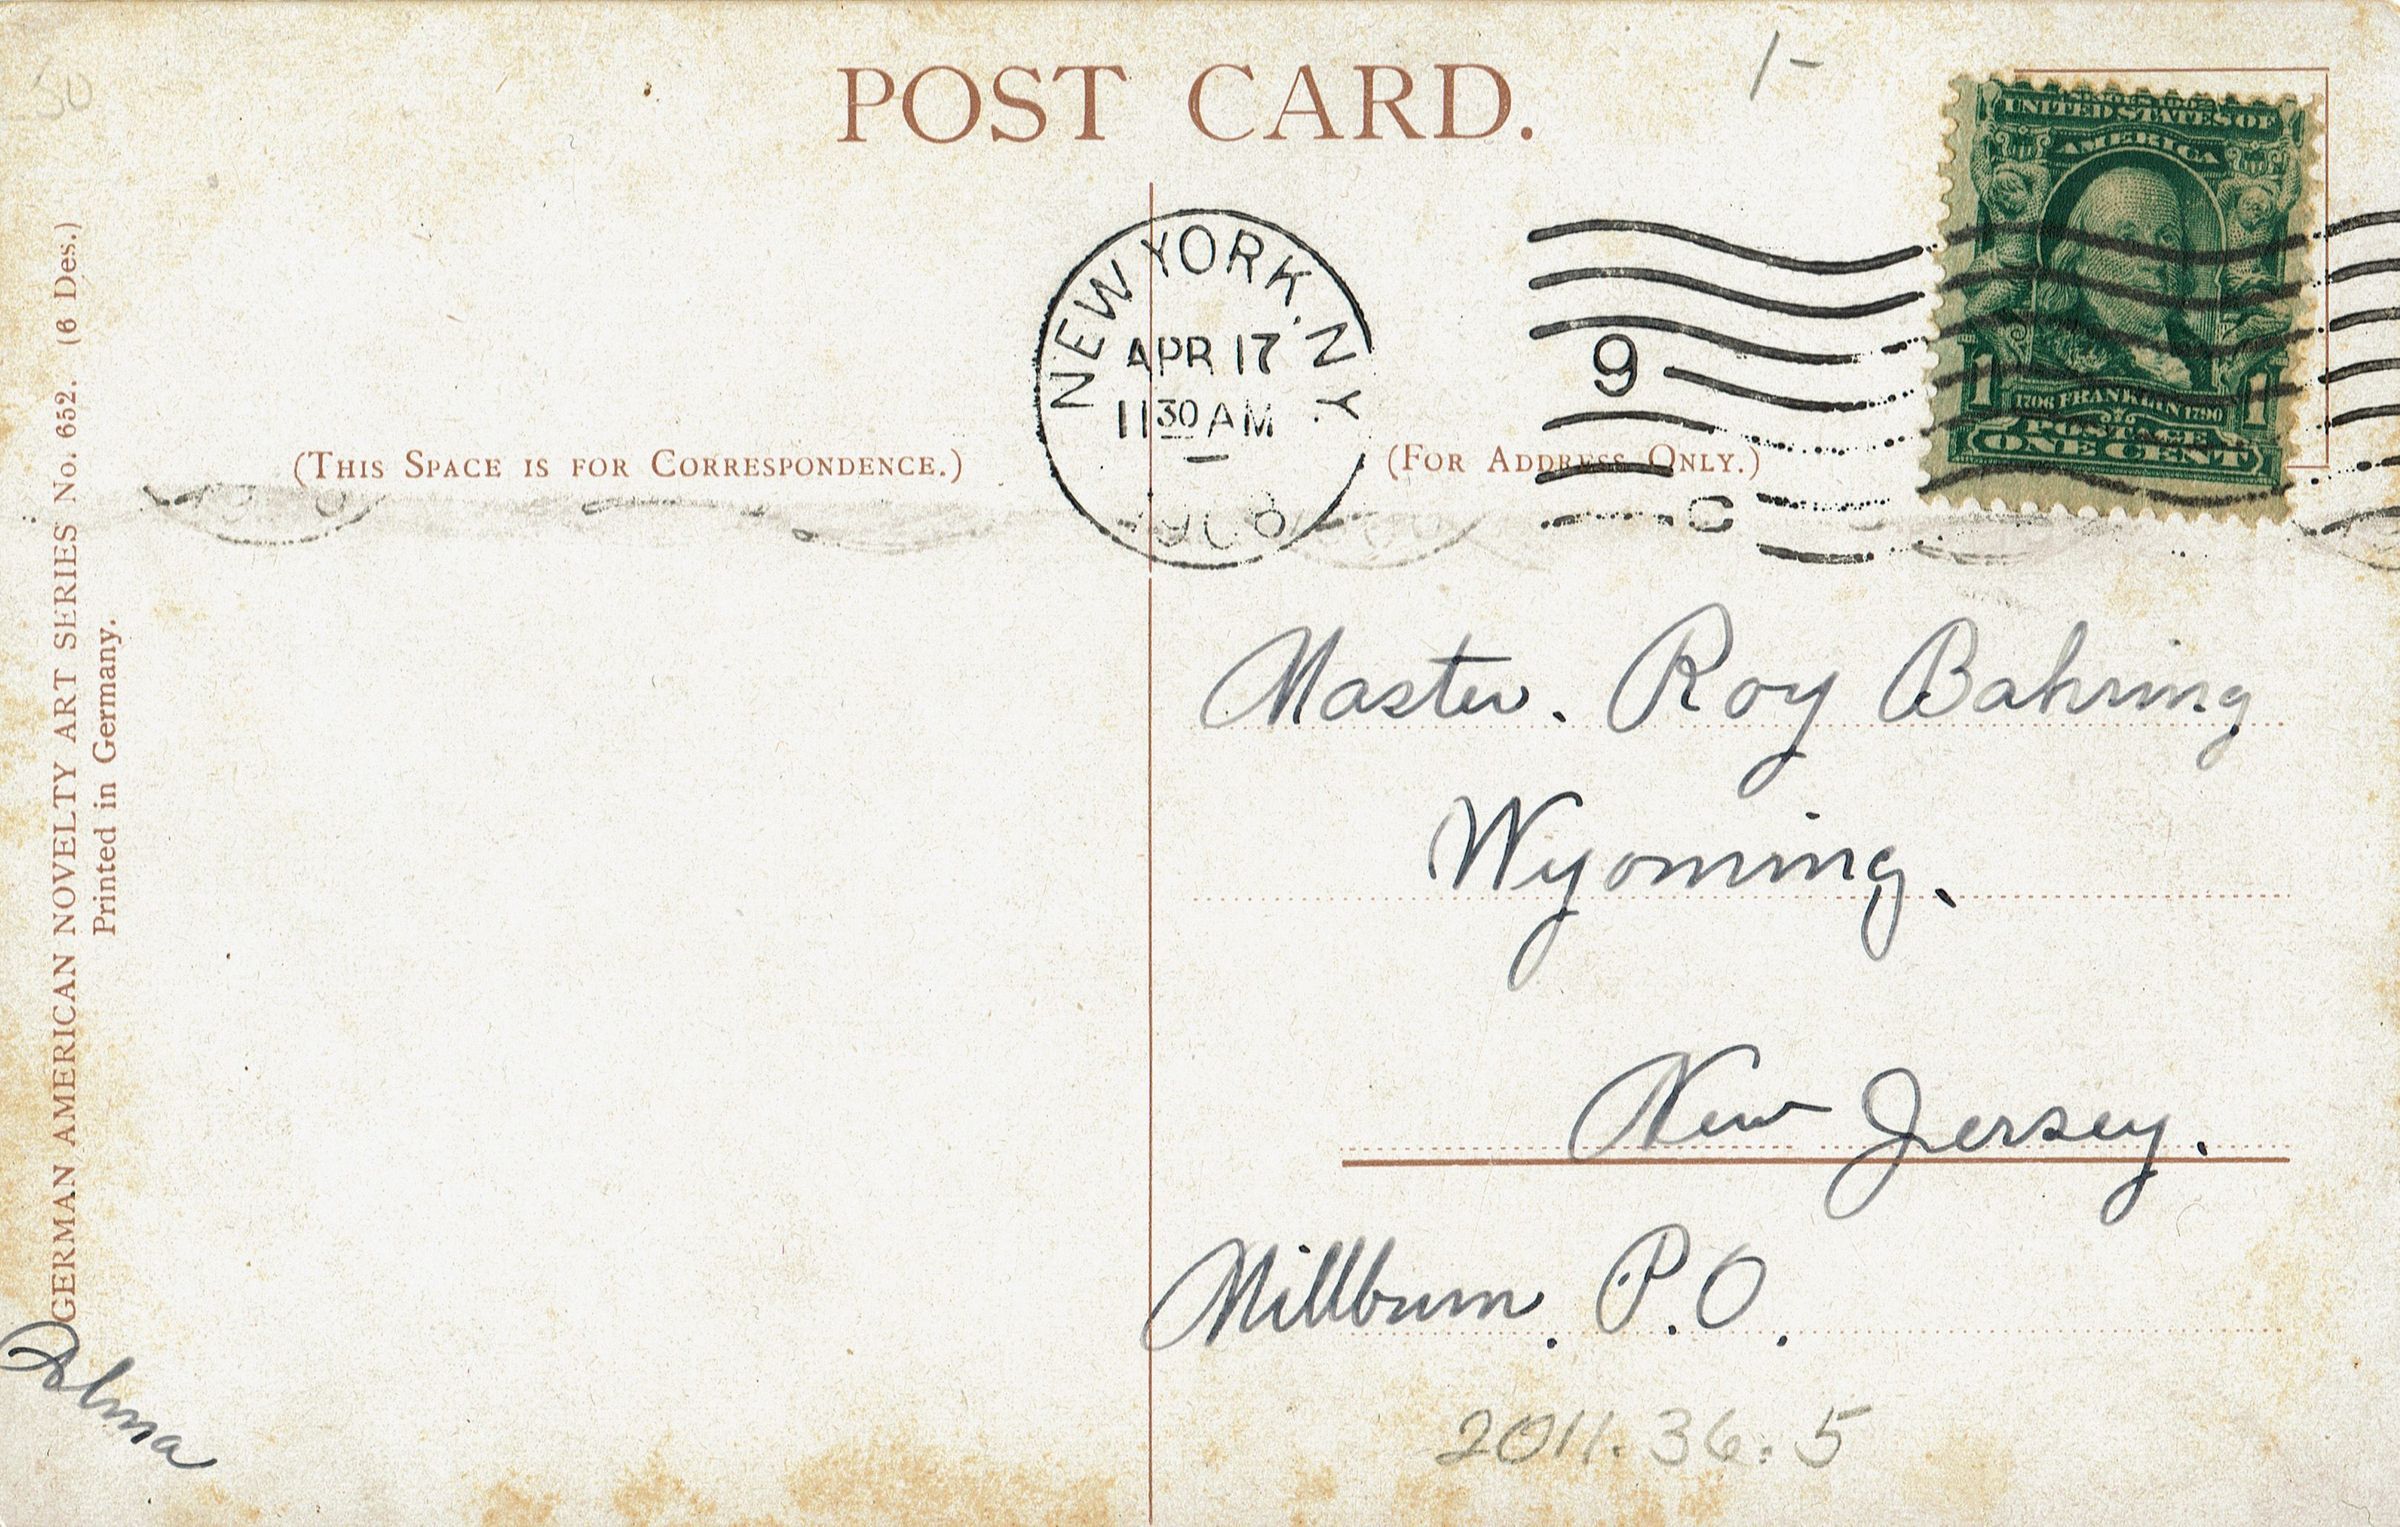 POST CARD.
1-
50
UNITED STATES OF
AMERICA
1706 FRANKLIN 1790
1 1
POSTAGE
ONE CENT
NEW YORK, N.Y.
APR 17
11 30 AM
1908
9
C
(THIS SPACE IS FOR CORRESPONDENCE.)
(FOR ADDRESS ONLY.)
GERMAN AMERICAN NOVELTY ART SERIES No. 652. (6 Des.)
Printed in Germany.
Master. Roy Bahring
Wyoming.
New Jersey.
Millburn. P.O.
2011.36.5